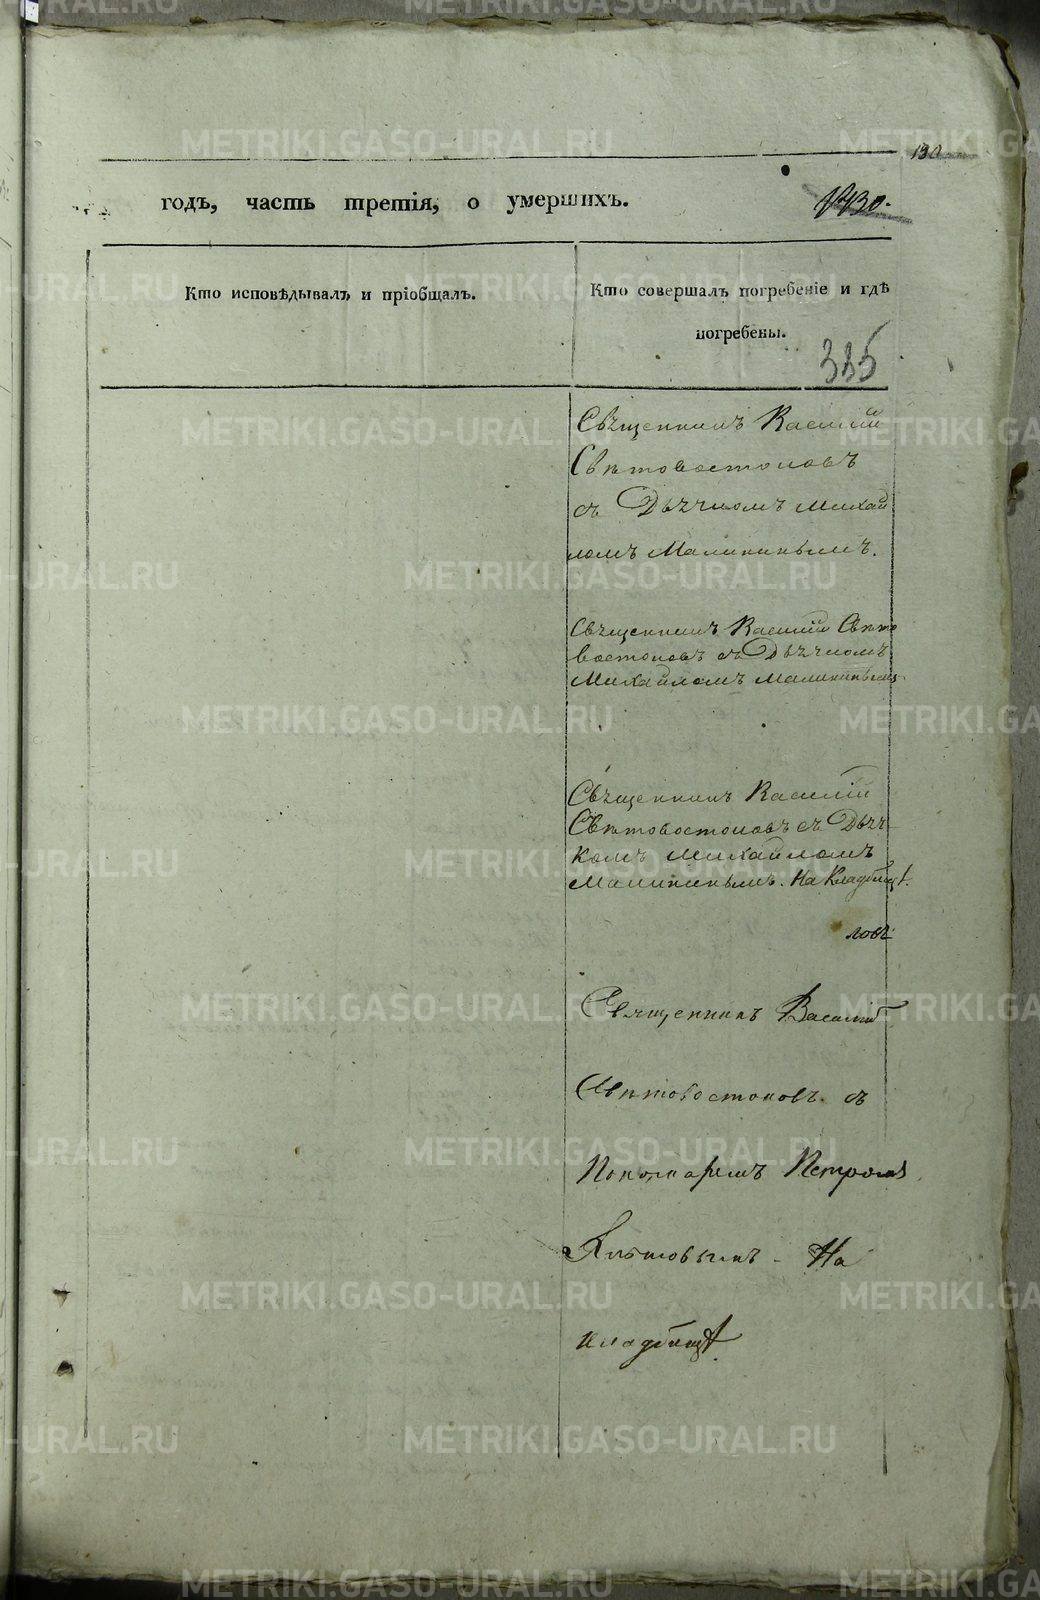 130
годъ, часть третія, о умершихъ.
130.
Кто исповѣдывалъ и пріобщалъ.
Кто совершалъ погребеніе и гдѣ
погребены.
335
Священникъ Василій
Свѣтовостоковъ
съ Дьячкомъ Михай
ломъ Малининымъ.
Священникъ Василій Свѣто
востоковъ съ Дьячкомъ
Михайломъ Малининымъ
Священникъ Василій
Свѣтовостоковъ съ Дьяч
комъ Михайломъ
Малининымъ. На Кладбищѣ.
Священникъ Василій
Свѣтовостоковъ съ
Пономаремъ Петромъ
На
кладбищѣ.
METRIKI.GASO-URAL.RU